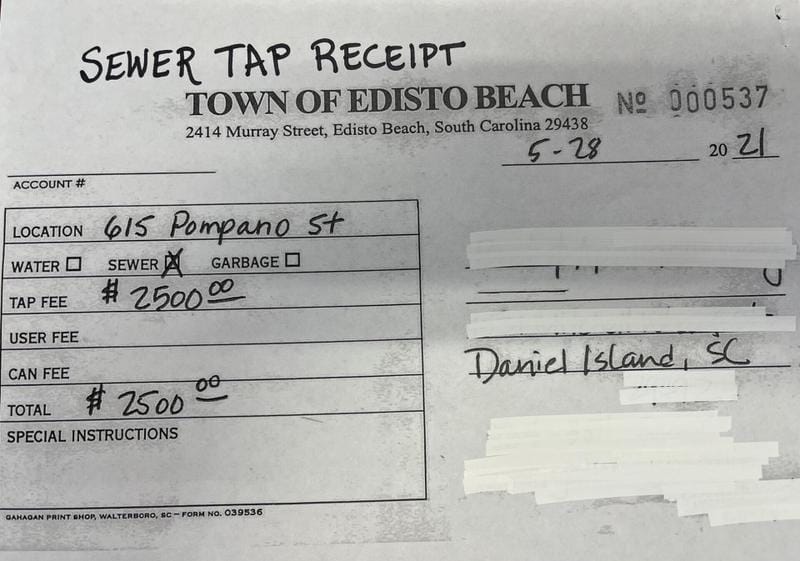 SEWER TAP RECEIPT
TOWN OF EDISTO BEACH
Nº 000537
2414 Murray Street, Edisto Beach, South Carolina 29438
5-28 2021
ACCOUNT #
LOCATION 615 Pompano St
WATER SEWER GARBAGE
TAP FEE # 2500 00
USER FEE
CAN FEE
Daniel Island, SC
TOTAL # 2500 00
SPECIAL INSTRUCTIONS
GAHAGAN PRINT SHOP, WALTERBORO, SC – FORM NO. 039536